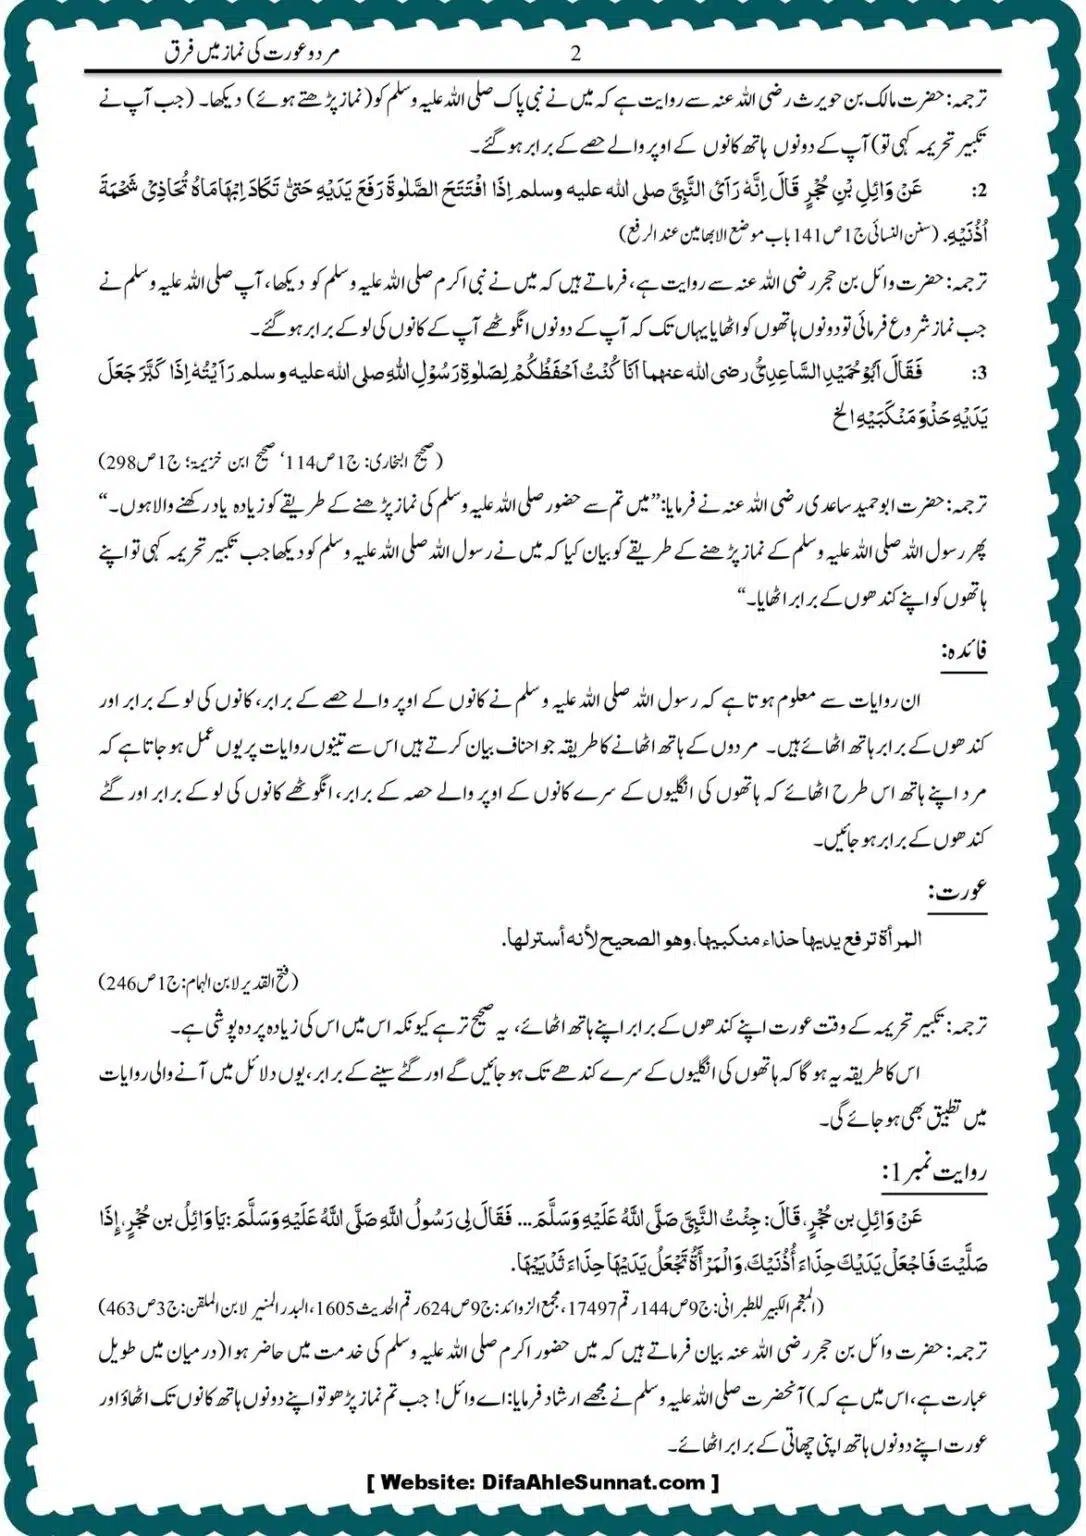 مرد و عورت کی نماز میں فرق
2
ترجمہ: حضرت مالک بن حویرث رضی اللہ عنہ سے روایت ہے کہ میں نے نبی پاک صلی اللہ علیہ و سلم کو (نماز پڑھتے ہوئے) دیکھا۔ (جب آپ نے
تکبیر تحریمہ کہی تو) آپ کے دونوں ہاتھ کانوں کے اوپر والے حصے کے برابر ہو گئے۔
2: عَنْ وَائِلِ بْنِ حُجْرٍ قَالَ اِنَّهٗ رَاَیَ النَّبِیَّ صلى الله عليه وسلم اِذَا افْتَتَحَ الصَّلٰوةَ رَفَعَ یَدَیْهِ حَتیّٰ تَکَادَ اِبْهَامَاهُ تُحَاذِیْ شَحْمَةَ
اُذُنَیْهِ. (سنن النسائی ج1 ص141 باب موضع الابھامین عند الرفع)
ترجمہ: حضرت وائل بن حجر رضی اللہ عنہ سے روایت ہے، فرماتے ہیں کہ میں نے نبی اکرم صلی اللہ علیہ و سلم کو دیکھا، آپ صلی اللہ علیہ و سلم نے
جب نماز شروع فرمائی تو دونوں ہاتھوں کو اٹھایا یہاں تک کہ آپ کے دونوں انگوٹھے آپ کے کانوں کی لو کے برابر ہو گئے۔
3: فَقَالَ اَبُوْحُمَیْدِ السَّاعِدِیُّ رضى الله عنهما اَنَا کُنْتُ اَحْفَظُکُمْ لِصَلٰوةِ رَسُوْلِ اللّٰهِ صلى الله عليه و سلم رَاَیْتُهٗ اِذَا کَبَّرَ جَعَلَ
یَدَیْهِ حَذْوَ مَنْکَبَیْهِ الخ
(صحیح البخاری: ج1 ص114‘ صحیح ابن خزیمۃ: ج1 ص298)
ترجمہ: حضرت ابو حمید ساعدی رضی اللہ عنہ نے فرمایا: ”میں تم سے حضور صلی اللہ علیہ و سلم کی نماز پڑھنے کے طریقے کو زیادہ یاد رکھنے والا ہوں۔“
پھر رسول اللہ صلی اللہ علیہ و سلم کے نماز پڑھنے کے طریقے کو بیان کیا کہ میں نے رسول اللہ صلی اللہ علیہ و سلم کو دیکھا جب تکبیر تحریمہ کہی تو اپنے
ہاتھوں کو اپنے کندھوں کے برابر اٹھایا۔“
فائدہ:
ان روایات سے معلوم ہوتا ہے کہ رسول اللہ صلی اللہ علیہ و سلم نے کانوں کے اوپر والے حصے کے برابر، کانوں کی لو کے برابر اور
کندھوں کے برابر ہاتھ اٹھائے ہیں۔ مردوں کے ہاتھ اٹھانے کا طریقہ جو احناف بیان کرتے ہیں اس سے تینوں روایات پر یوں عمل ہو جاتا ہے کہ
مرد اپنے ہاتھ اس طرح اٹھائے کہ ہاتھوں کی انگلیوں کے سرے کانوں کے اوپر والے حصہ کے برابر، انگوٹھے کانوں کی لو کے برابر اور گٹے
کندھوں کے برابر ہو جائیں۔
عورت:
المرأة ترفع يديها حذاء منكبيها، وهو الصحيح لأنه أستر لها.
(فتح القدیر لابن الہمام: ج1 ص246)
ترجمہ: تکبیر تحریمہ کے وقت عورت اپنے کندھوں کے برابر اپنے ہاتھ اٹھائے، یہ صحیح تر ہے کیونکہ اس میں اس کی زیادہ پردہ پوشی ہے۔
اس کا طریقہ یہ ہو گا کہ ہاتھوں کی انگلیوں کے سرے کندھے تک ہو جائیں گے اور گٹے سینے کے برابر، یوں دلائل میں آنے والی روایات
میں تطبیق بھی ہو جائے گی۔
روایت نمبر 1:
عَنْ وَائِلِ بن حُجْرٍ، قَالَ: جِئْتُ النَّبِيَّ صَلَّى اللَّهُ عَلَيْهِ وَسَلَّمَ... فَقَالَ لِي رَسُولُ اللَّهِ صَلَّى اللَّهُ عَلَيْهِ وَسَلَّمَ: يَا وَائِلُ بن حُجْرٍ، إِذَا
صَلَّيْتَ فَاجْعَلْ يَدَيْكَ حِذَاءَ أُذُنَيْكَ، وَالْمَرْأَةُ تَجْعَلُ يَدَيْهَا حِذَاءَ ثَدْيَيْهَا.
(المعجم الکبیر للطبرانی: ج9 ص144 رقم 17497، مجمع الزوائد: ج9 ص624 رقم الحدیث 1605، البدر المنیر لابن الملقن: ج3 ص463)
ترجمہ: حضرت وائل بن حجر رضی اللہ عنہ بیان فرماتے ہیں کہ میں حضور اکرم صلی اللہ علیہ و سلم کی خدمت میں حاضر ہوا (درمیان میں طویل
عبارت ہے، اس میں ہے کہ) آنحضرت صلی اللہ علیہ و سلم نے مجھے ارشاد فرمایا: اے وائل! جب تم نماز پڑھو تو اپنے دونوں ہاتھ کانوں تک اٹھاؤ اور
عورت اپنے دونوں ہاتھ اپنی چھاتی کے برابر اٹھائے۔
[ Website: DifaAhleSunnat.com ]